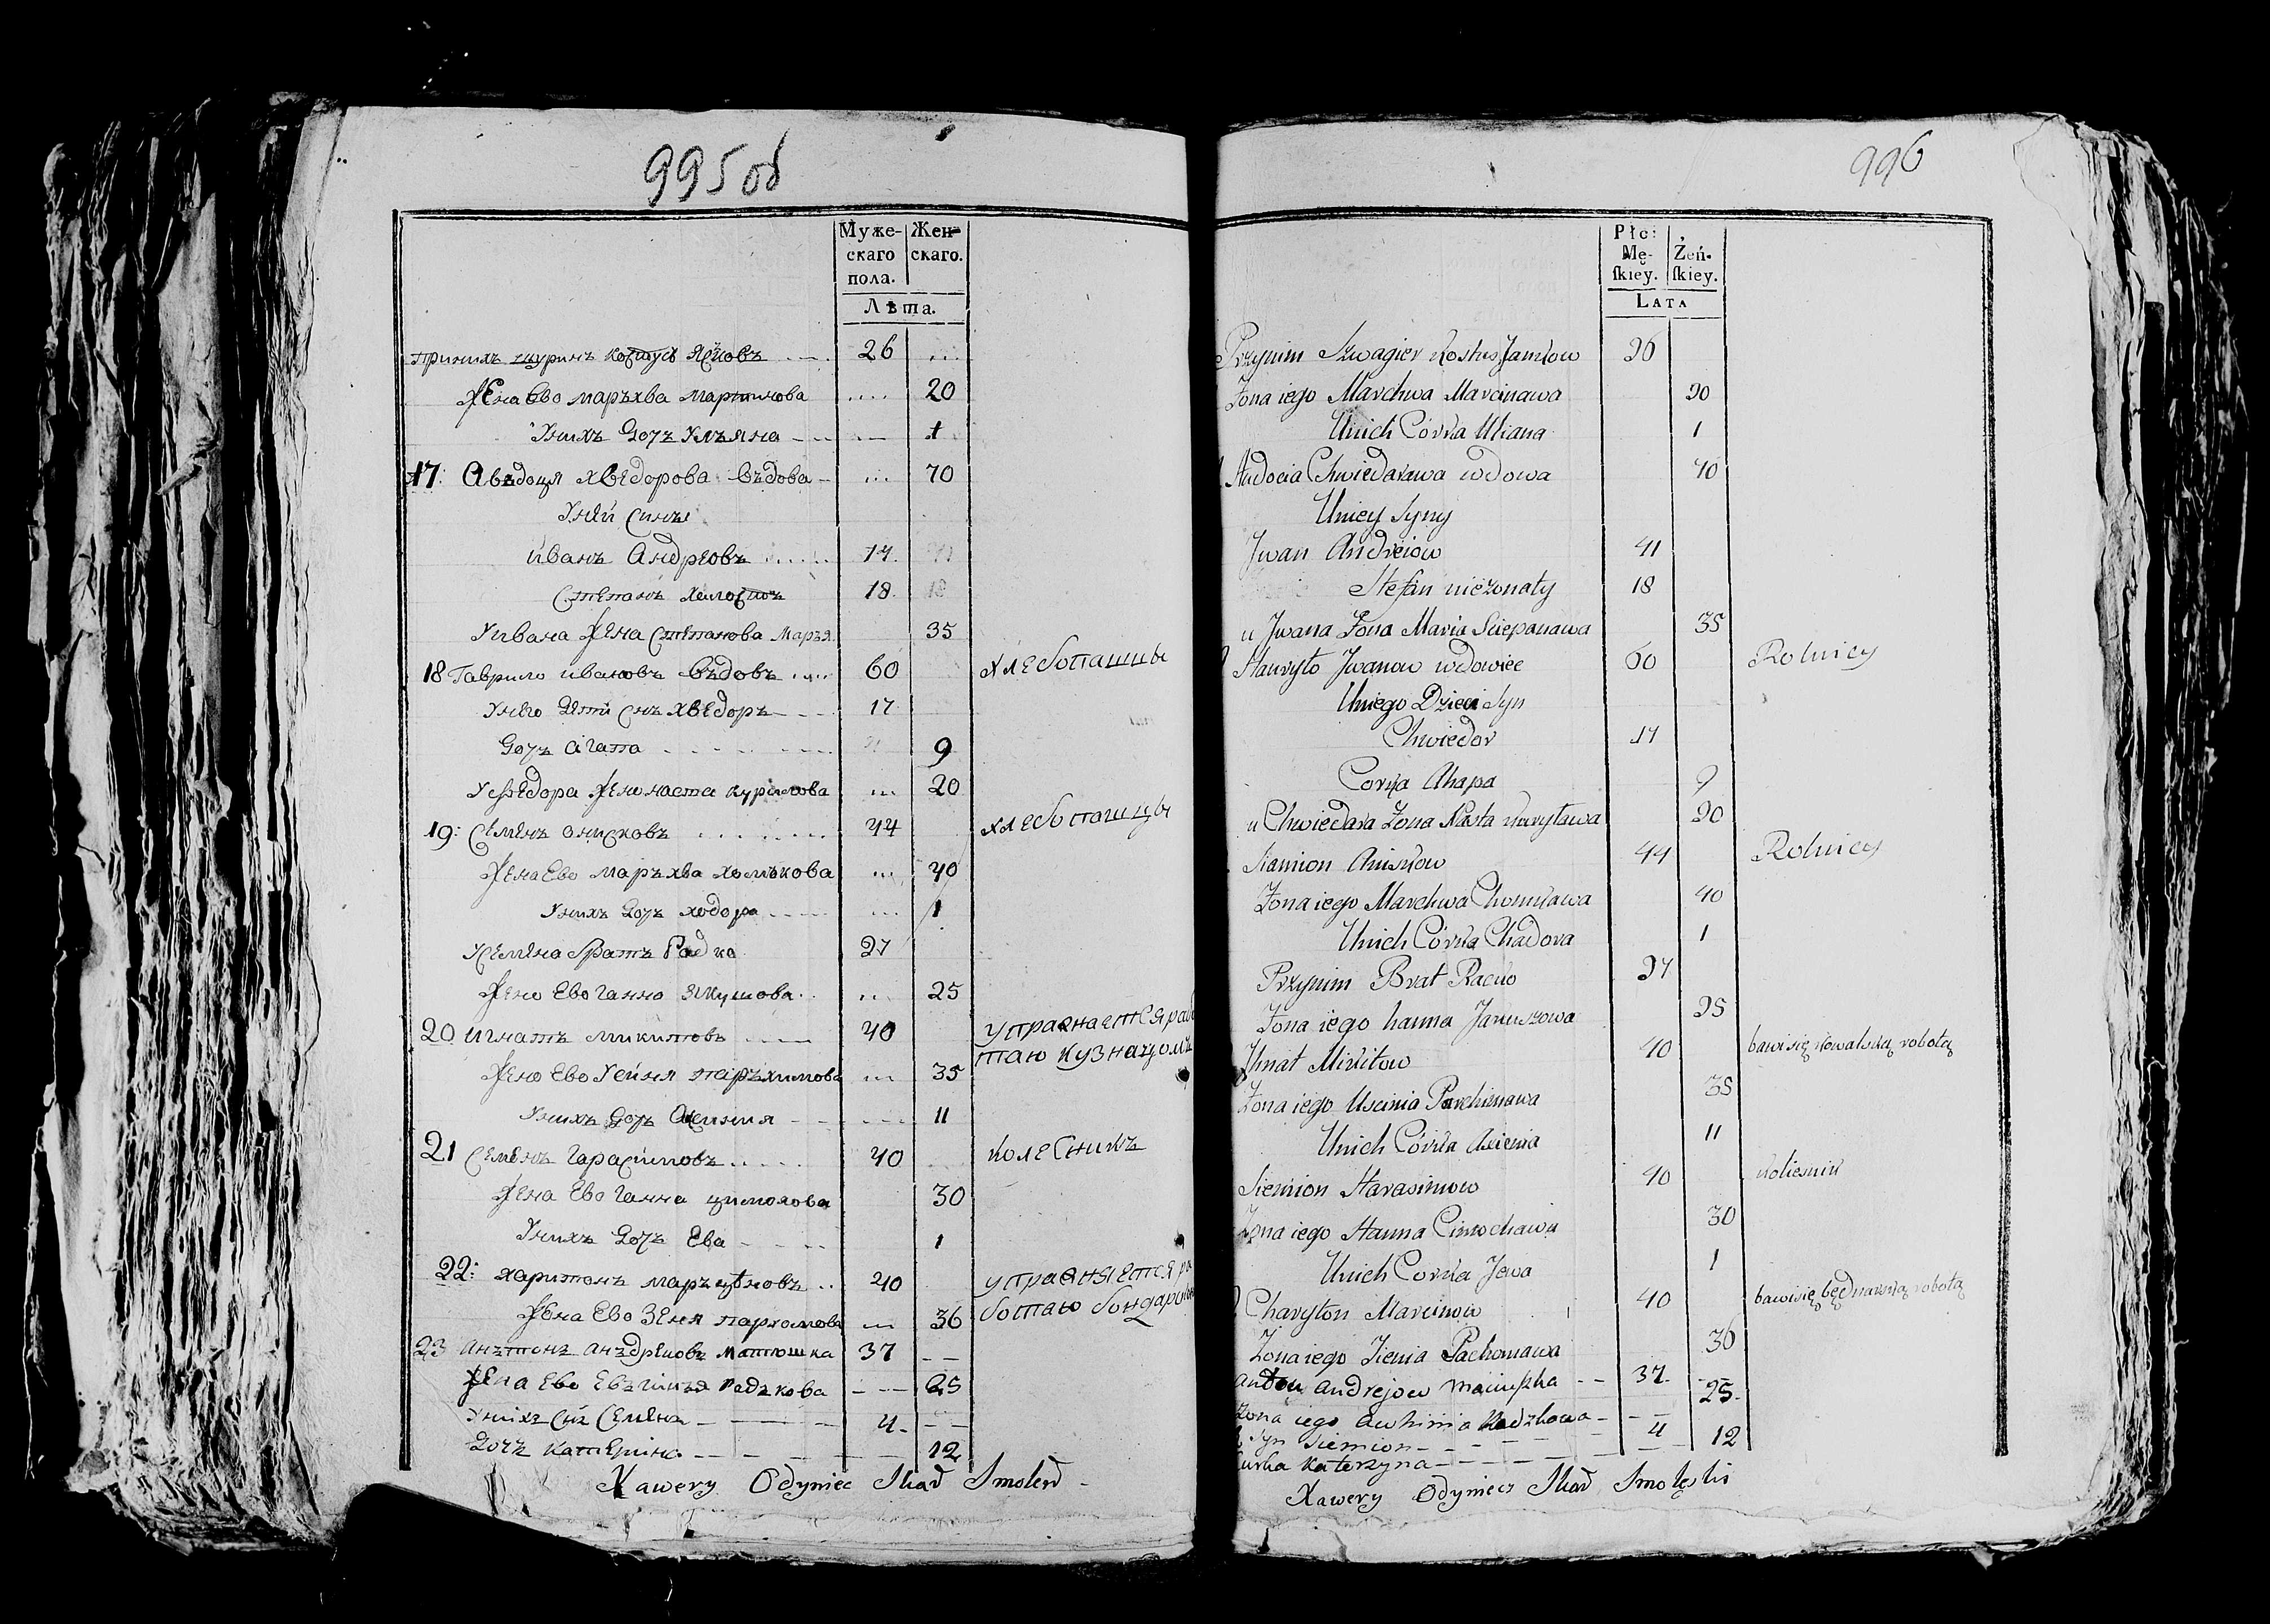 995 об
Муже-
скаго
пола.
Жен-
скаго.
Лѣта.
принихъ шуринъ костусь Янковъ 26
Жена Ево маръхва мартинова 20
Унихъ Дочъ Улъяна 1
17: Авъдоця хведорова въдова 70
Уней Сины
иванъ Андреовъ 17
Степанъ холостъ 18
Уивана Жена степанова Маръя 35
18 Гаврило ивановъ въдовъ 60 хлебопашцы
Унего Дети Снъ хведоръ 17
Дочъ агапа 9
Ухведора Жена наста курилова 20
19: Семенъ онисковъ 44 хлебопашцы
Жена Ево маръхва хомъкова 40
Унихъ Дочъ ходора 1
Усемена братъ Радко 27
Жена Ево ганна Якушова 25
20 Игнатъ микитовъ 40 упражнается рабо
таю кузнацомъ
Жена Ево Устиня паръхимова 35
Унихъ Дочъ Аксиния 11
21 Семенъ гарасимовъ 40 колесникъ
Жена Ево ганна цимохова 30
Унихъ Дочъ Ева 1
22: харитонъ маръциновъ 40 упражняется ра
ботаю бондаров
Жена Ево Зеня пархомова 36
23 Анътонъ анъдреювъ матюшка 37
Жена Ево Евъгиня Радъкова 25
Унихъ Сн Семенъ 4
Дочъ катерина 12
Xawery Odyniec Skar Smoleń
996
Płci
Mę-
ſkiey.
Żeń-
ſkiey.
Lata
Przynim Szwagier Kostus Jankow 26
Żona iego Marchwa Marcinawa 20
Unich Córka Uliana 1
Audocia Chwiedarawa wdowa 70
Uniey Syny
Jwan Andreiow 41
Stefan nieżonaty 18
u Jwana Żona Maria Sciepanawa 35
Hawryło Jwanow wdowiec 60 Rolnicy
Uniego Dzieci Syn
Chwiedor 17
Corka Ahapa 9
u Chwiedara Żona Nasta Kuryława 20
Siamion Aniskow 44 Rolnicy
Żona iego Marchwa Chomkawa 40
Unich Córka Chadora 1
Przynim Brat Racko 27
Żona iego hanna Januszowa 25
Jhnat Mikitow 40 bawi się kowalską robotą
Żona iego Uscinia Parchimawa 35
Unich Córka Axienia 11
Siemion Harasimow 40 koliesnik
Żona iego Hanna Cimochawa 30
Unich Corka Jewa 1
Charyton Marcinow 40 bawi się będnarską robotą
Żona iego Zienia Pachomawa 36
Anton Andrejow Maciuszka 37
Żona iego Awhinia Radzkowa 25
Syn Siemion 4
Curka Katerzyna 12
Xawery Odyniec Skar Smolęski